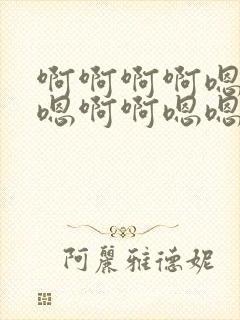 啊啊啊啊嗯
嗯啊啊嗯嗯
阿麗雅德妮